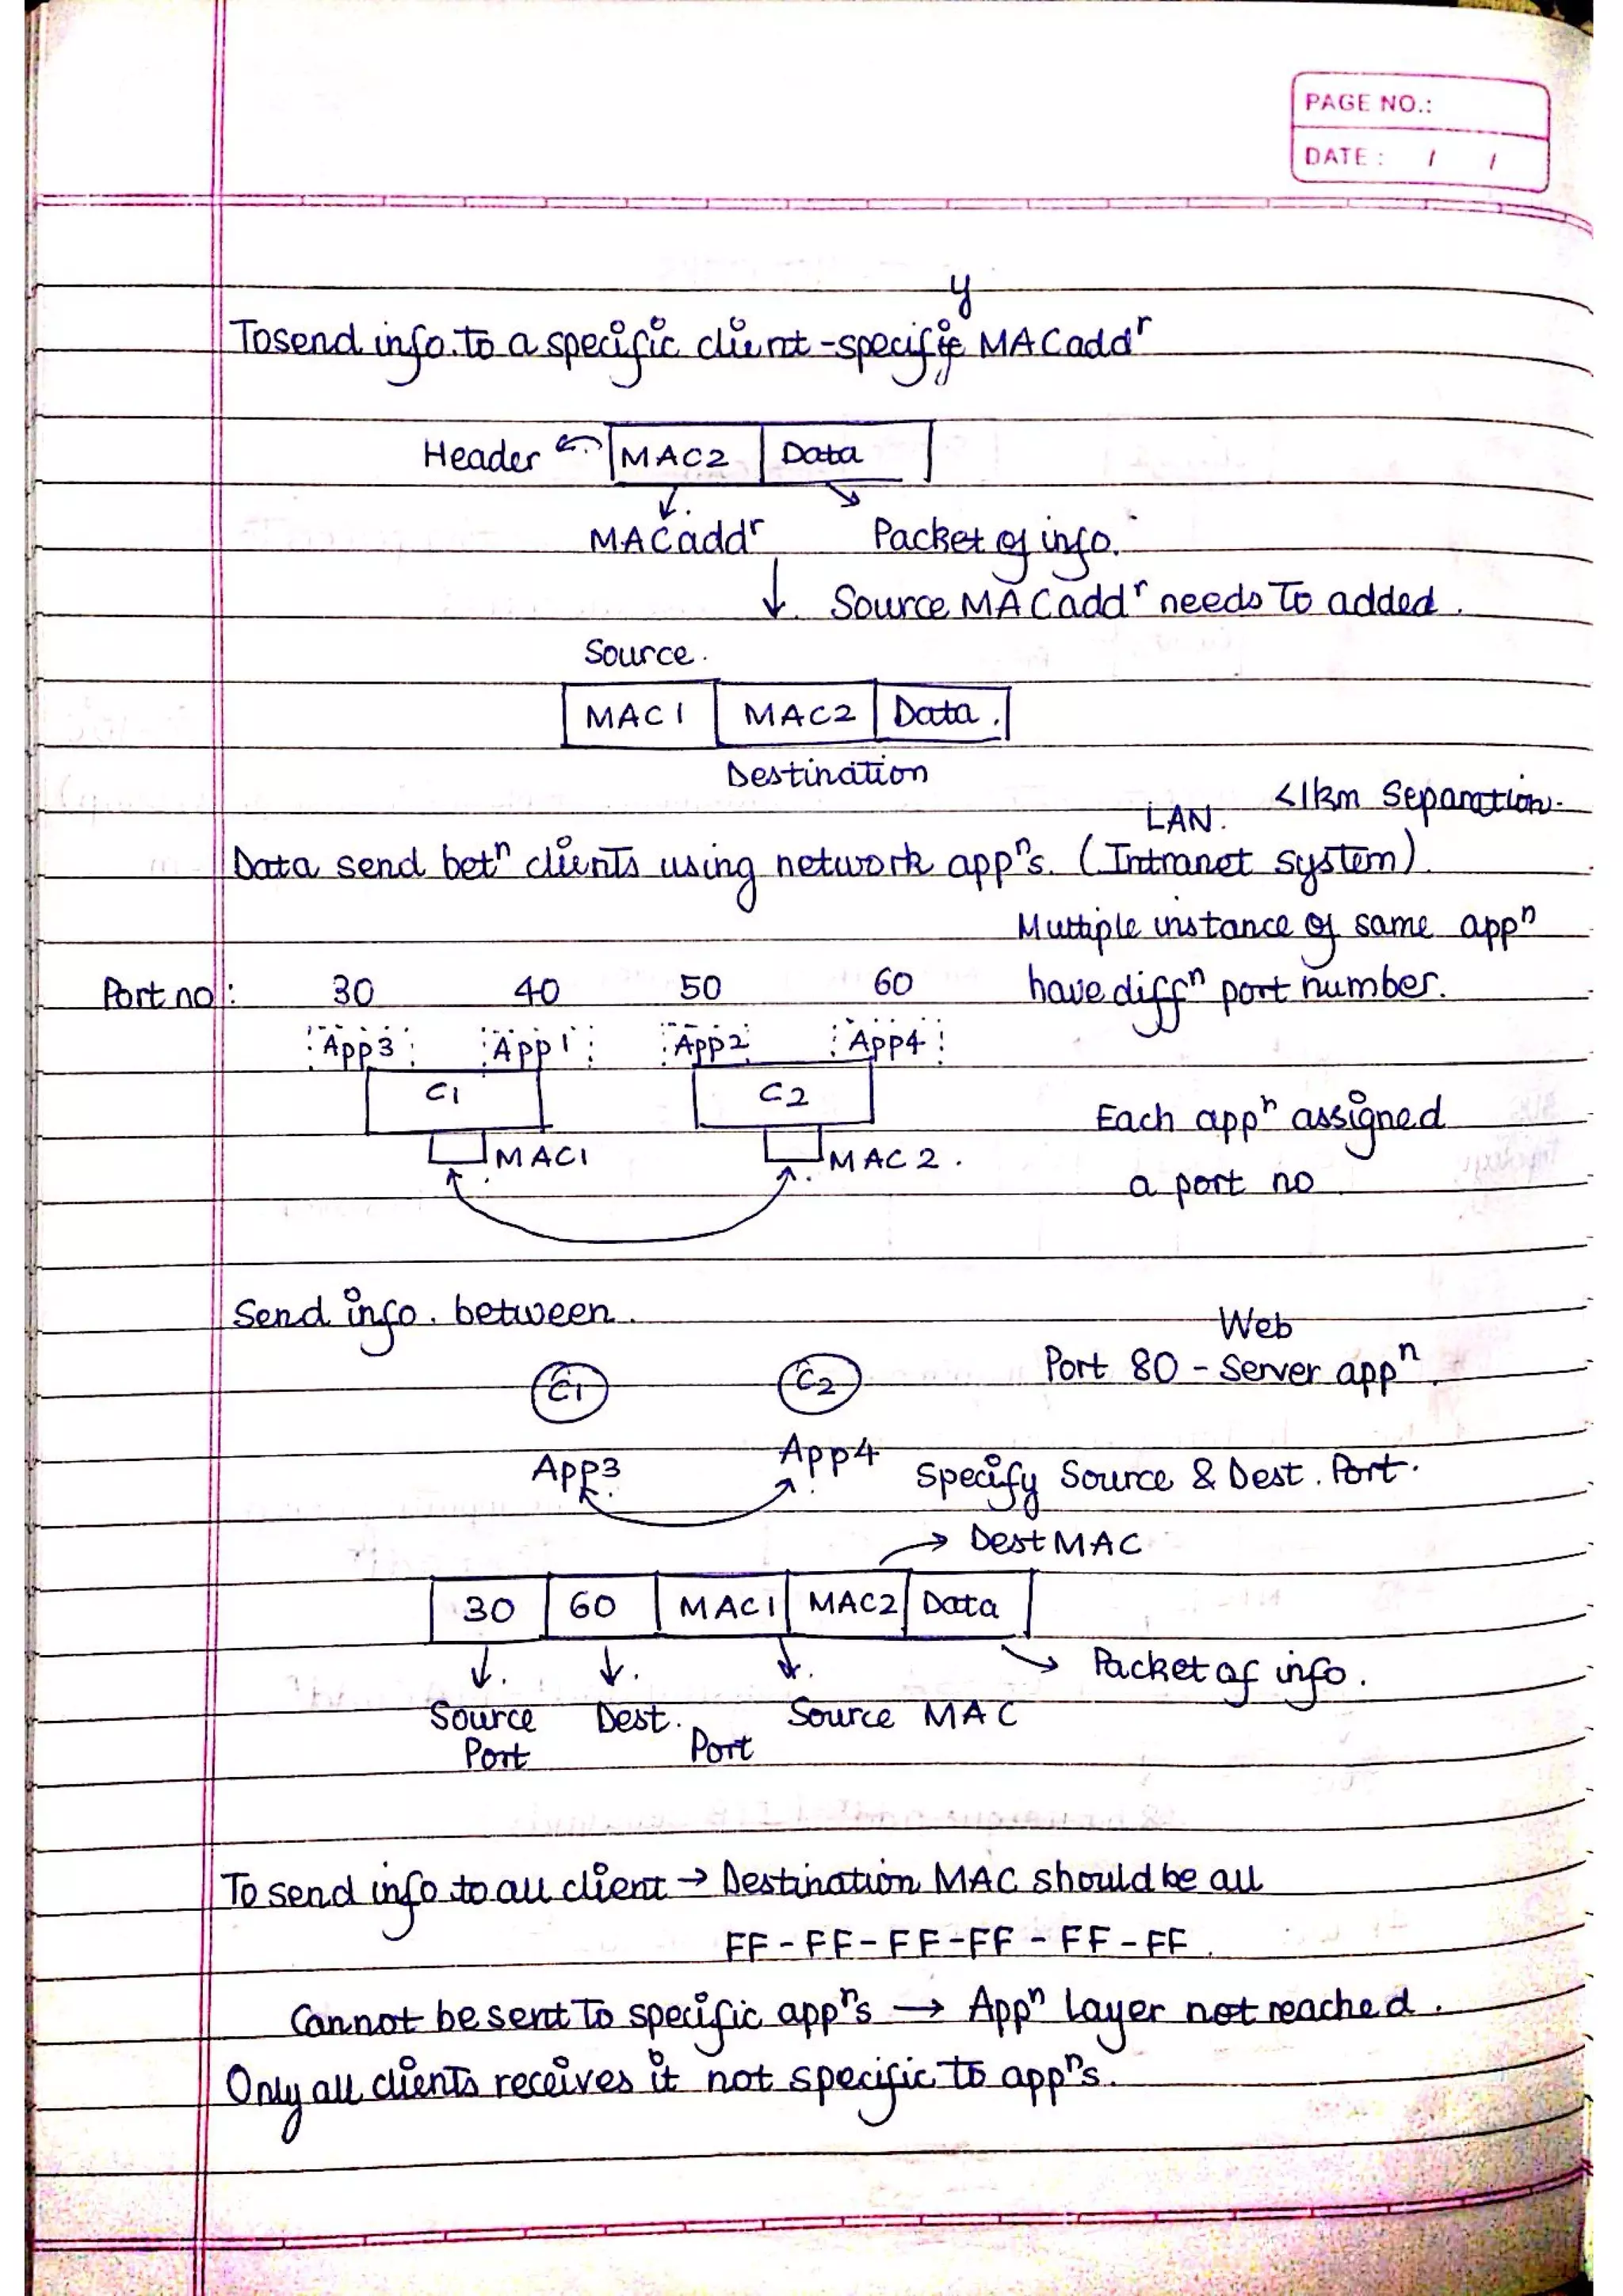 PAGE NO.:
DATE : / /
y
To send info. to a specific client - specify MAC addʳ
Header MAC2 Data
MAC addʳ Packet of info.
Source MAC addʳ needs to added.
Source.
MAC1 MAC2 Data.
Destination
<1km separation.
LAN.
Data send betⁿ clients using network appⁿs. (Intranet system)
Multiple instance of same appⁿ
Port no: 30 40 50 60 have diffⁿ port number.
App3 App1 App2 App4
C1 C2
Each appⁿ assigned
MAC1 MAC2.
a port no
Send info. between.
Web
C1 C2 Port 80 - Server appⁿ.
App3 App4 Specify Source & Dest. Port.
Dest MAC
30 60 MAC1 MAC2 Data
Packet of info.
Source Dest. Source MAC
Port Port
To send info to all client → Destination MAC should be all
FF - FF - FF - FF - FF - FF.
Cannot be sent to specific appⁿs → Appⁿ layer not reached.
Only all clients receives it not specific to appⁿs.